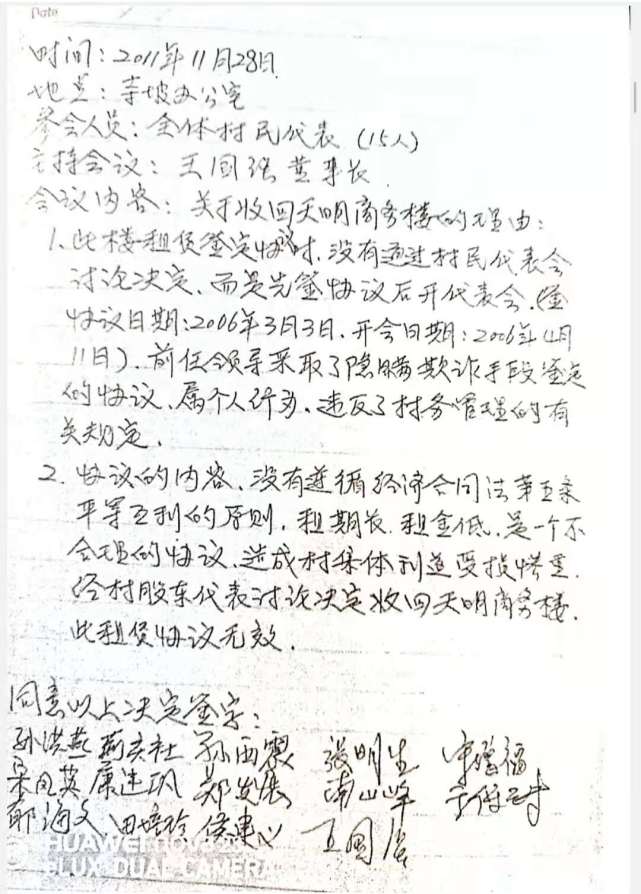 Date
时间：2011年11月28日
地点：寺坡办公室
参会人员：全体村民代表（15人）
主持会议：王国强董事长
会议内容：关于收回天明商务楼的理由：
1、此楼租赁签定协议时，没有通过村民代表会
讨论决定、而是先签协议后开代表会（签
协议日期：2006年3月3日，开会日期：2006年4月
11日）。前任领导采取了隐瞒欺诈手段签定
的协议、属个人行为、违反了村务管理的有
关规定。
2、协议的内容、没有遵循经济合同法第五条
平等互利的原则，租期长、租金低、是一个不
合理的协议、造成村集体利益受损惨重。
经村股东代表讨论决定收回天明商务楼。
此租赁协议无效。
同意以上决定签字：
孙洪燕 孙雨霞 张明生 宋增福
宋凤英 康建巩 郑发展 南山峰
郁海文 田培玲 侯建议 王国
HUAWEI nova
FLUX DUAL CAMERA